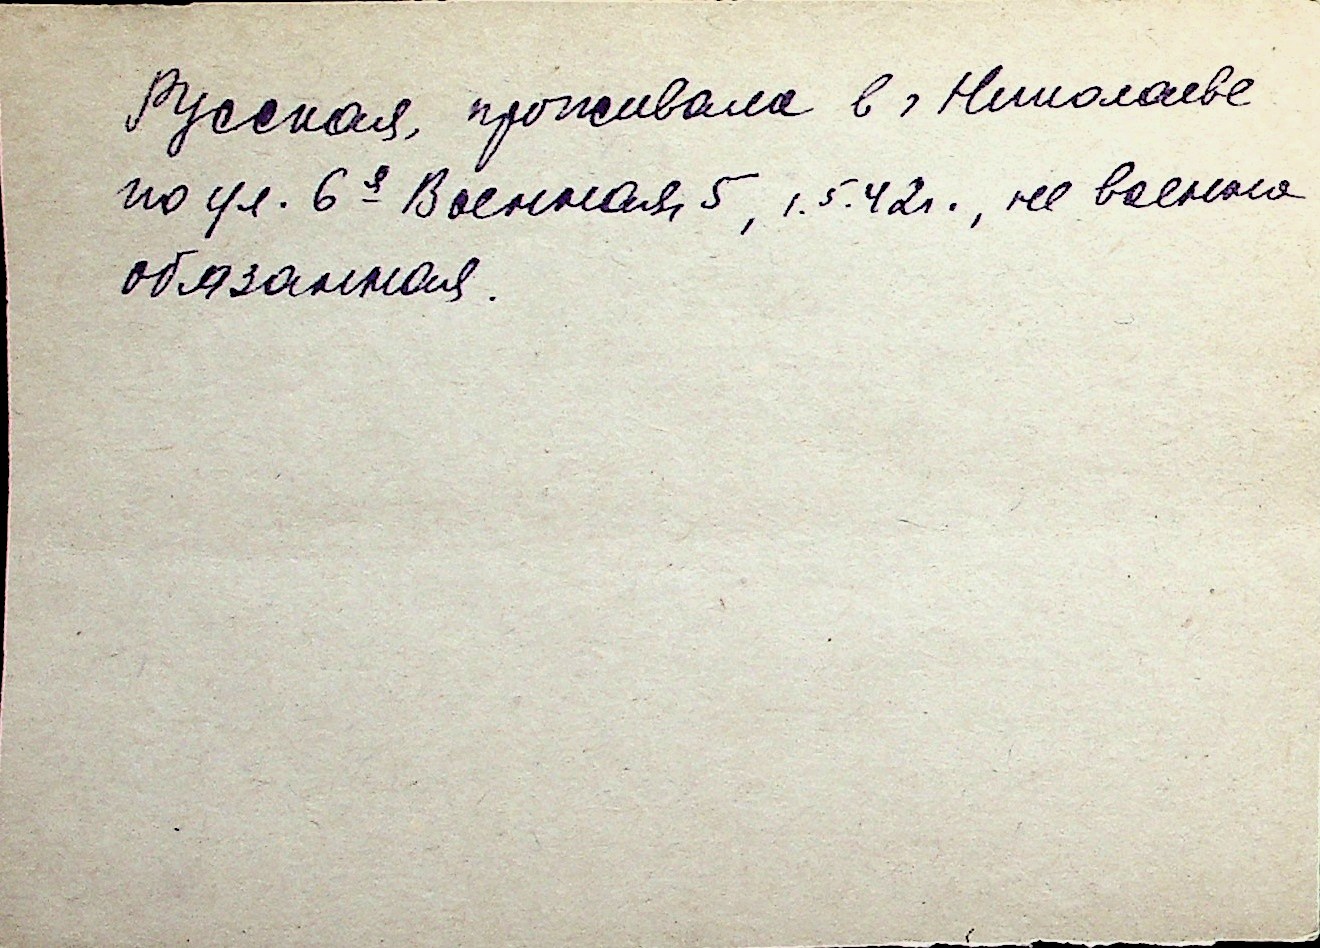 Русская, проживала в г Николаеве
по ул. 6я Военная, 5, 1.5.42г., не военно
обязанная.